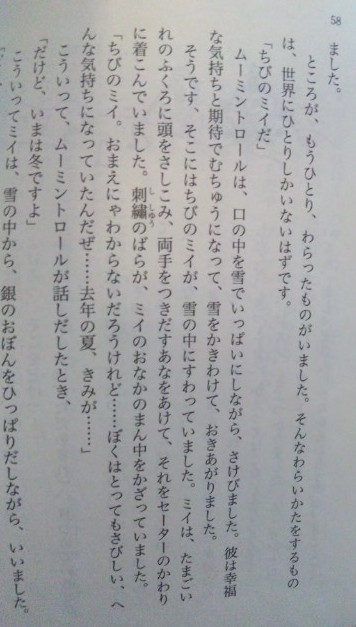 58
ました。
ところが、もうひとり、わらったものがいました。そんなわらいかたをするもの
は、世界にひとりしかいないはずです。
「ちびのミイだ」
ムーミントロールは、口の中を雪でいっぱいにしながら、さけびました。彼は幸福
な気持ちと期待でむちゅうになって、雪をかきわけて、おきあがりました。
そうです、そこにはちびのミイが、雪の中にすわっていました。ミイは、たまごい
れのふくろに頭をさしこみ、両手をつきだすあなをあけて、それをセーターのかわり
に着こんでいました。刺繡のばらが、ミイのおなかのまん中をかざっていました。
「ちびのミイ。おまえにゃわからないだろうけれど……ぼくはとってもさびしい、へ
んな気持ちになっていたんだぜ……去年の夏、きみが……」
こういって、ムーミントロールが話しだしたとき、
「だけど、いまは冬ですよ」
こういってミイは、雪の中から、銀のおぼんをひっぱりだしながら、いいました。